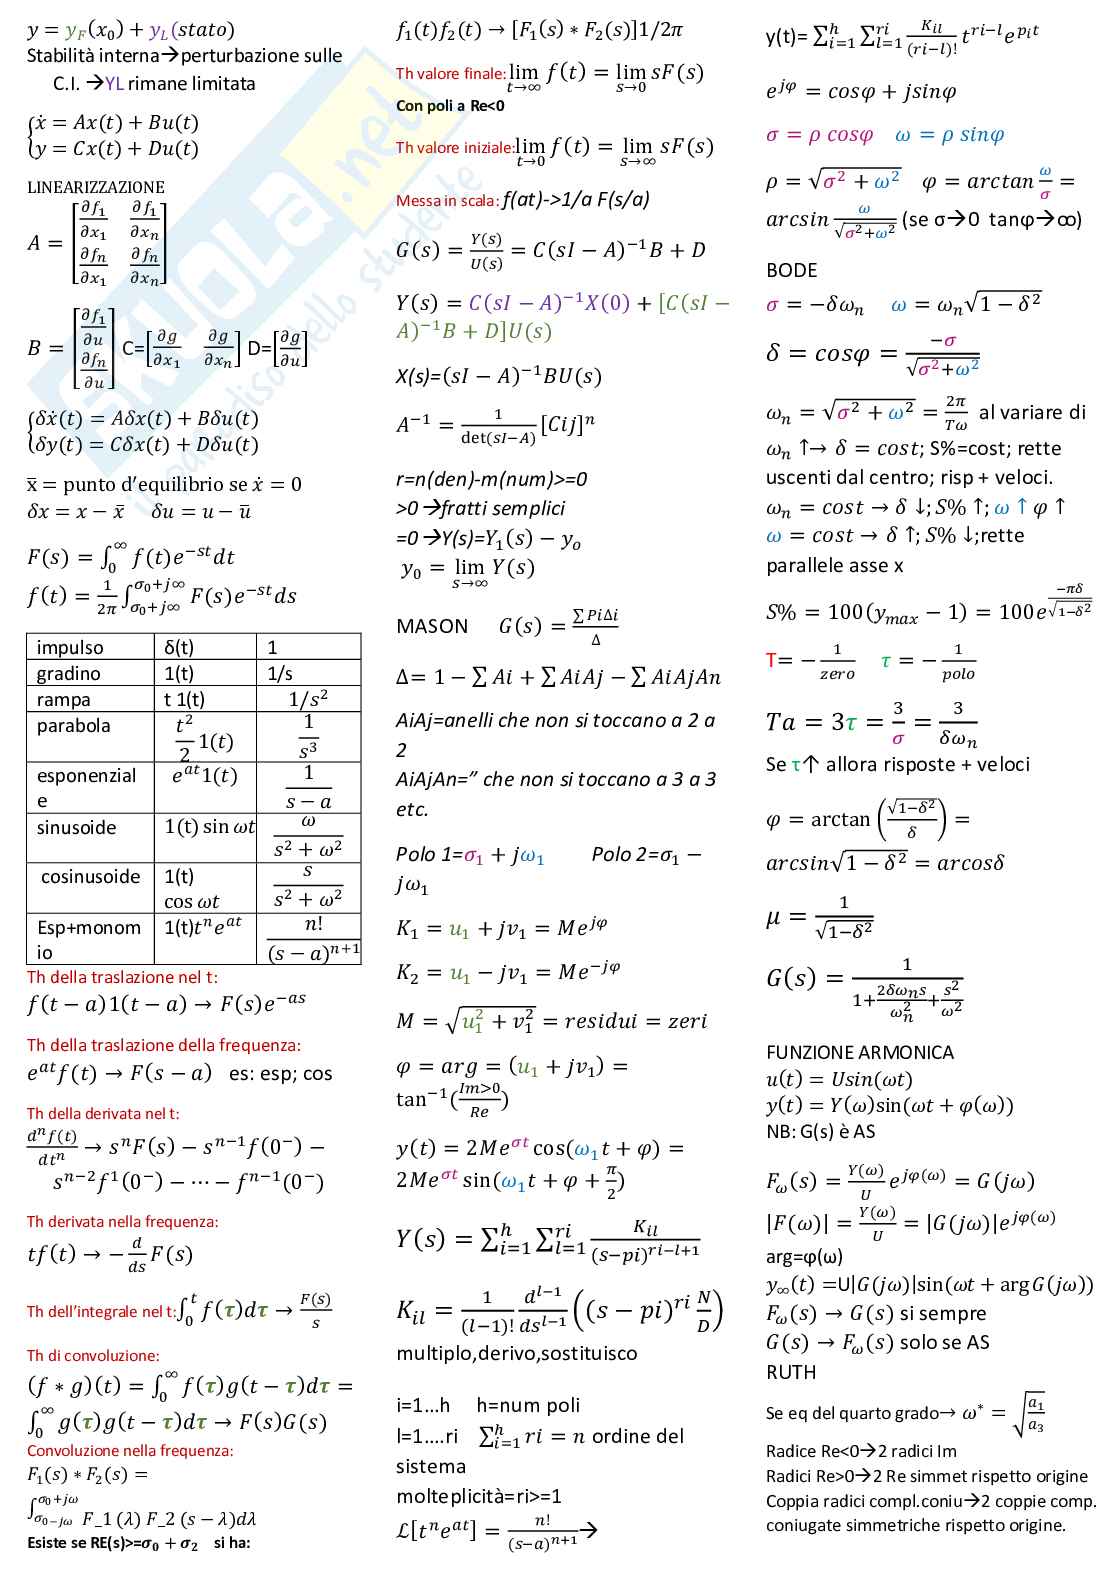 y = y_F(x_0) + y_L(stato)
Stabilità interna→perturbazione sulle
C.I. →YL rimane limitata
{ẋ = Ax(t) + Bu(t)
{y = Cx(t) + Du(t)
LINEARIZZAZIONE
A = [∂f_1/∂x_1 ∂f_1/∂x_n
∂f_n/∂x_1 ∂f_n/∂x_n]
B = [∂f_1/∂u
∂f_n/∂u] C=[∂g/∂x_1 ∂g/∂x_n] D=[∂g/∂u]
{δẋ(t) = Aδx(t) + Bδu(t)
{δy(t) = Cδx(t) + Dδu(t)
x̅ = punto d'equilibrio se ẋ = 0
δx = x − x̅ δu = u − u̅
F(s) = ∫_0^∞ f(t)e^{−st}dt
f(t) = 1/2π ∫_{σ_0+j∞}^{σ_0+j∞} F(s)e^{−st}ds
impulso δ(t) 1
gradino 1(t) 1/s
rampa t 1(t) 1/s^2
parabola t^2/2 1(t) 1/s^3
esponenzial
e e^{at}1(t) 1/(s − a)
sinusoide 1(t) sin ωt ω/(s^2 + ω^2)
cosinusoide 1(t)
cos ωt s/(s^2 + ω^2)
Esp+monom
io 1(t)t^n e^{at} n!/(s − a)^{n+1}
Th della traslazione nel t:
f(t − a)1(t − a) → F(s)e^{−as}
Th della traslazione della frequenza:
e^{at}f(t) → F(s − a) es: esp; cos
Th della derivata nel t:
d^n f(t)/dt^n → s^n F(s) − s^{n−1}f(0^−) −
s^{n−2}f^1(0^−) − ⋯ − f^{n−1}(0^−)
Th derivata nella frequenza:
tf(t) → − d/ds F(s)
Th dell'integrale nel t:∫_0^t f(τ)dτ → F(s)/s
Th di convoluzione:
(f ∗ g)(t) = ∫_0^∞ f(τ)g(t − τ)dτ =
∫_0^∞ g(τ)g(t − τ)dτ → F(s)G(s)
Convoluzione nella frequenza:
F_1(s) ∗ F_2(s) =
∫_{σ_0−jω}^{σ_0+jω} F_1 (λ) F_2 (s − λ)dλ
Esiste se RE(s)>=σ_0 + σ_2 si ha:
f_1(t)f_2(t) → [F_1(s) ∗ F_2(s)]1/2π
Th valore finale: lim_{t→∞} f(t) = lim_{s→0} sF(s)
Con poli a Re<0
Th valore iniziale: lim_{t→0} f(t) = lim_{s→∞} sF(s)
Messa in scala: f(at)->1/a F(s/a)
G(s) = Y(s)/U(s) = C(sI − A)^{−1}B + D
Y(s) = C(sI − A)^{−1}X(0) + [C(sI −
A)^{−1}B + D]U(s)
X(s)=(sI − A)^{−1}BU(s)
A^{−1} = 1/det(sI−A) [Cij]^n
r=n(den)-m(num)>=0
>0→fratti semplici
=0→Y(s)=Y_1(s) − y_o
y_0 = lim_{s→∞} Y(s)
MASON G(s) = ∑ PiΔi/Δ
Δ= 1 − ∑ Ai + ∑ AiAj − ∑ AiAjAn
AiAj=anelli che non si toccano a 2 a
2
AiAjAn=" che non si toccano a 3 a 3
etc.
Polo 1=σ_1 + jω_1 Polo 2=σ_1 −
jω_1
K_1 = u_1 + jv_1 = Me^{jφ}
K_2 = u_1 − jv_1 = Me^{−jφ}
M = √(u_1^2 + v_1^2) = residui = zeri
φ = arg = (u_1 + jv_1) =
tan^{−1}(Im>0/Re)
y(t) = 2Me^{σt} cos(ω_1t + φ) =
2Me^{σt} sin(ω_1t + φ + π/2)
Y(s) = ∑_{i=1}^h ∑_{l=1}^{ri} K_{il}/(s−pi)^{ri−l+1}
K_{il} = 1/(l−1)! d^{l−1}/ds^{l−1} ((s − pi)^{ri} N/D)
multiplo,derivo,sostituisco
i=1…h h=num poli
l=1….ri ∑_{i=1}^h ri = n ordine del
sistema
molteplicità=ri>=1
ℒ[t^n e^{at}] = n!/(s−a)^{n+1}→
y(t)= ∑_{i=1}^h ∑_{l=1}^{ri} K_{il}/(ri−l)! t^{ri−l}e^{p_i t}
e^{jφ} = cosφ + jsinφ
σ = ρ cosφ ω = ρ sinφ
ρ = √(σ^2 + ω^2) φ = arctan ω/σ =
arcsin ω/√(σ^2+ω^2) (se σ→0 tanφ→∞)
BODE
σ = −δω_n ω = ω_n√(1 − δ^2)
δ = cosφ = −σ/√(σ^2+ω^2)
ω_n = √(σ^2 + ω^2) = 2π/Tω al variare di
ω_n ↑→ δ = cost; S%=cost; rette
uscenti dal centro; risp + veloci.
ω_n = cost → δ ↓; S% ↑; ω ↑ φ ↑
ω = cost → δ ↑; S% ↓;rette
parallele asse x
S% = 100(y_{max} − 1) = 100e^{−πδ/√(1−δ^2)}
T= − 1/zero τ = − 1/polo
Ta = 3τ = 3/σ = 3/δω_n
Se τ↑ allora risposte + veloci
φ = arctan (√(1−δ^2)/δ) =
arcsin√(1 − δ^2) = arcosδ
μ = 1/√(1−δ^2)
G(s) = 1/(1+2δω_n s/ω_n^2+s^2/ω^2)
FUNZIONE ARMONICA
u(t) = Usin(ωt)
y(t) = Y(ω)sin(ωt + φ(ω))
NB: G(s) è AS
F_ω(s) = Y(ω)/U e^{jφ(ω)} = G(jω)
|F(ω)| = Y(ω)/U = |G(jω)|e^{jφ(ω)}
arg=φ(ω)
y_∞(t) =U|G(jω)|sin(ωt + arg G(jω))
F_ω(s) → G(s) si sempre
G(s) → F_ω(s) solo se AS
RUTH
Se eq del quarto grado→ ω^* = √(a_1/a_3)
Radice Re<0→2 radici Im
Radici Re>0→2 Re simmet rispetto origine
Coppia radici compl.coniu→2 coppie comp.
coniugate simmetriche rispetto origine.
SKUOLA.net